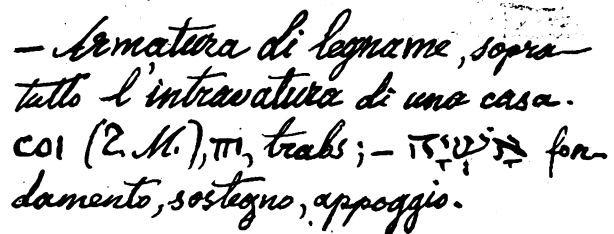 – Armatura di legname, sopra–
tutto l'intravatura di una casa.
ⲥⲟⲓ (T. M.), ⲡⲓ, trabs; – אָשְׁיָה fon–
damento, sostegno, appoggio.